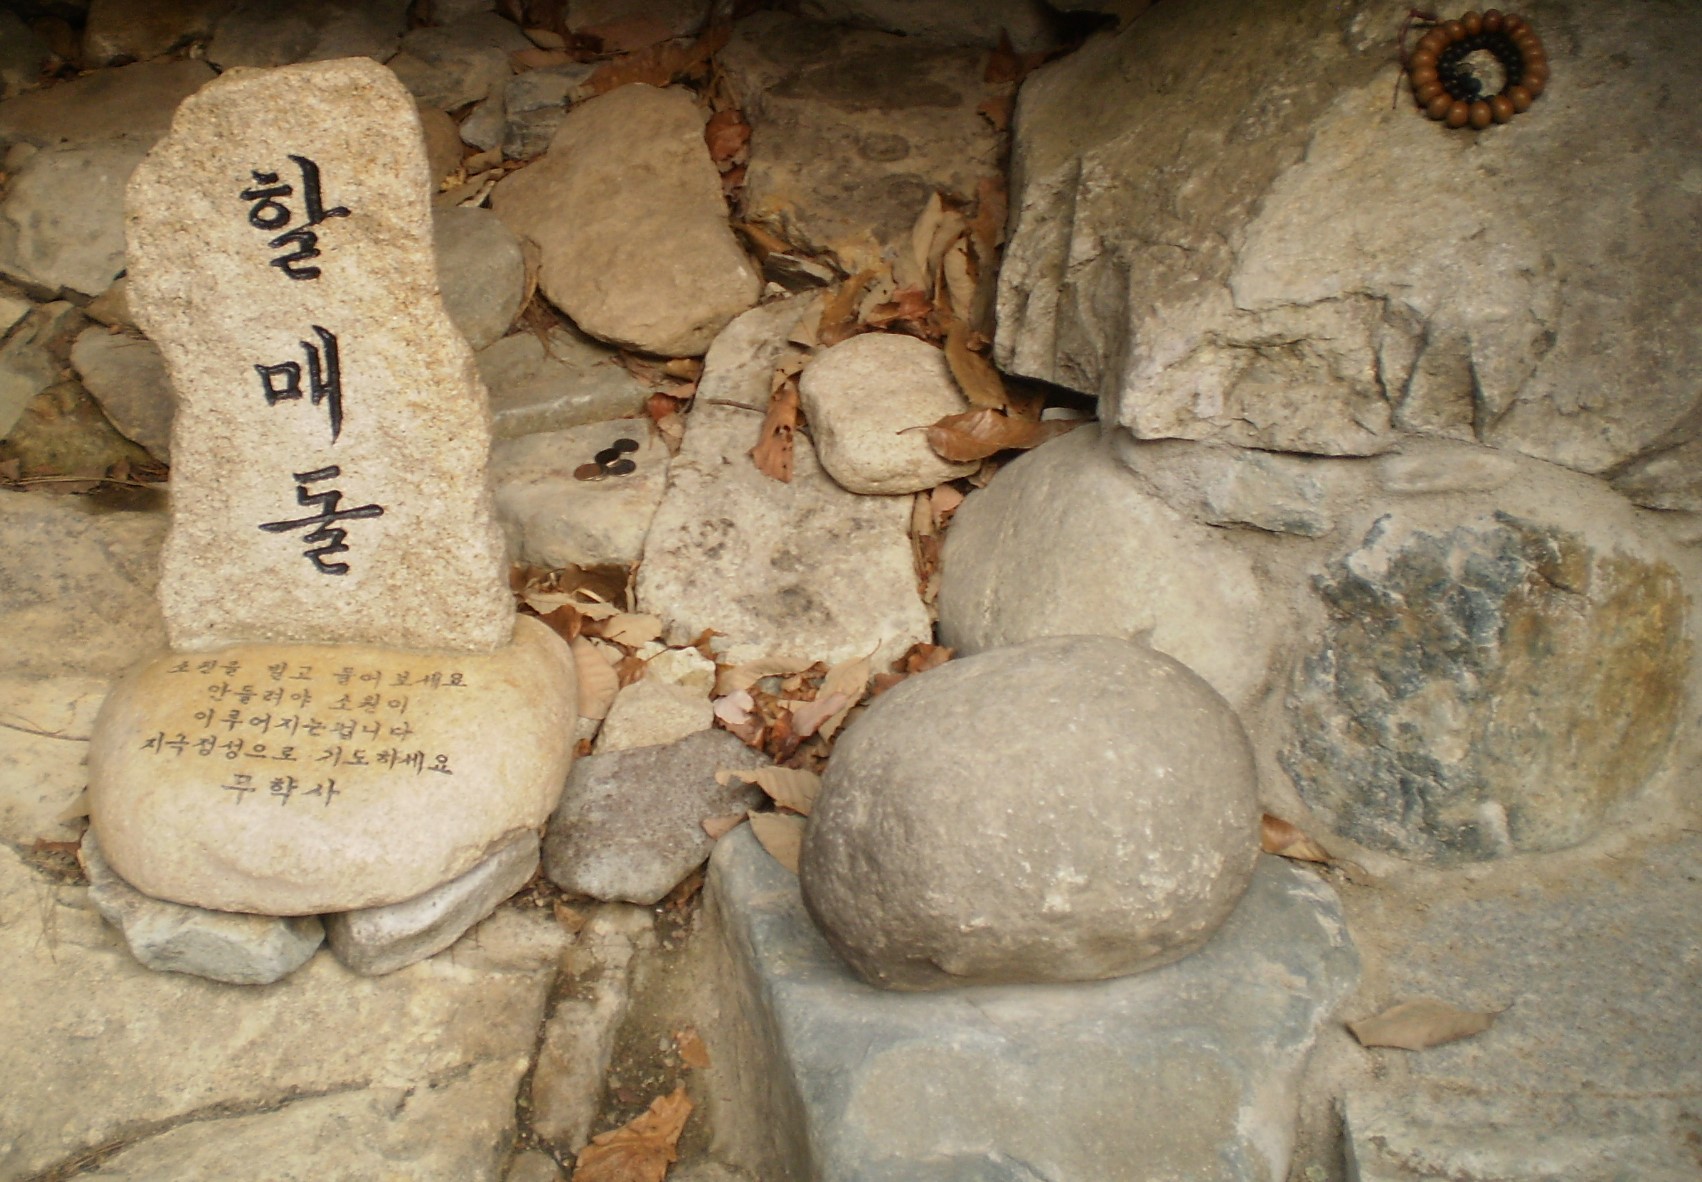 할매돌
소원을 빌고 들어보세요
안들려야 소원이
이루어지는겁니다
지극정성으로 기도하세요
무학사